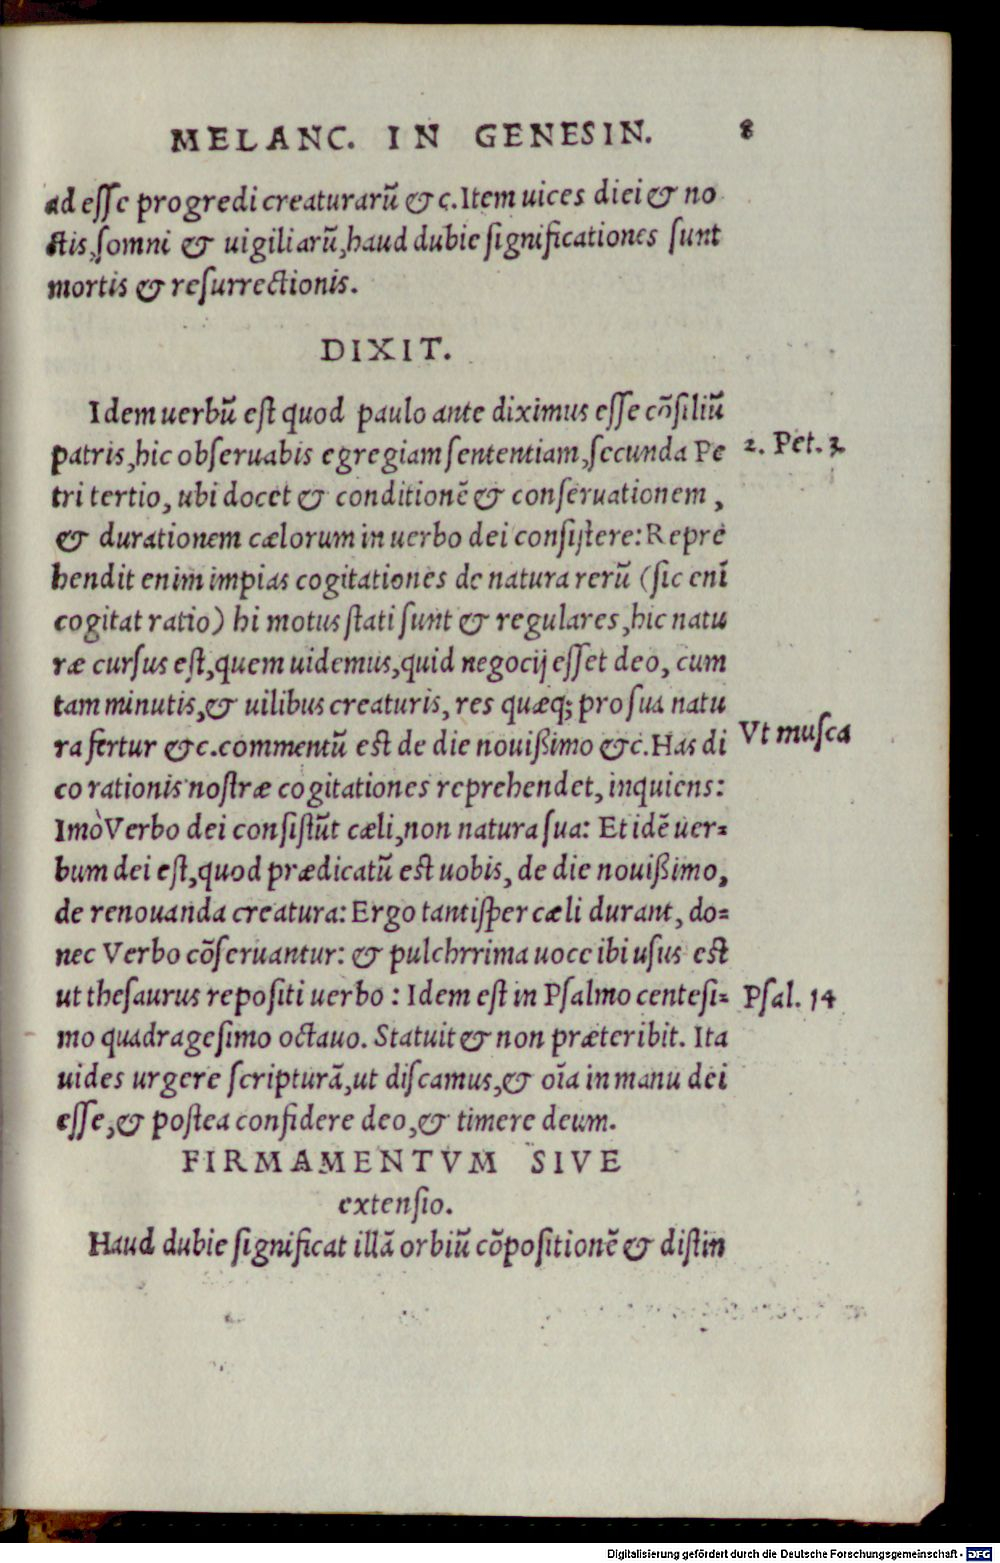 MELANC. IN GENESIN. 8
ad esse progredi creaturarũ & c. Item uices diei & no
ctis, somni & uigiliarũ, haud dubie significationes sunt
mortis & resurrectionis.
DIXIT.
Idem uerbũ est quod paulo ante diximus esse cõsiliũ
patris, hic obseruabis egregiam sententiam, secunda Pe
2. Pet. 3.
tri tertio, ubi docet & conditionẽ & conseruationem,
& durationem cælorum in uerbo dei consistere: Repre
hendit enim impias cogitationes de natura rerũ (sic enĩ
cogitat ratio) hi motus stati sunt & regulares, hic natu
ræ cursus est, quem uidemus, quid negocij esset deo, cum
tam minutis, & uilibus creaturis, res quæq; pro sua natu
Vt musca
ra fertur &c. commentũ est de die nouißimo &c. Has di
co rationis nostræ cogitationes reprehendet, inquiens:
Imò Verbo dei consistũt cæli, non natura sua: Et idẽ uer=
bum dei est, quod prædicatũ est uobis, de die nouißimo,
de renouanda creatura: Ergo tantisper cæli durant, do=
nec Verbo cõseruantur: & pulchrrima uoce ibi usus est
ut thesaurus repositi uerbo: Idem est in Psalmo centesi=
Psal. 14
mo quadragesimo octauo. Statuit & non præteribit. Ita
uides urgere scripturã, ut discamus, & oĩa in manu dei
esse, & postea confidere deo, & timere deum.
FIRMAMENTVM SIVE
extensio.
Haud dubie significat illã orbiũ cõpositionẽ & distin
Digitalisierung gefördert durch die Deutsche Forschungsgemeinschaft - DFG